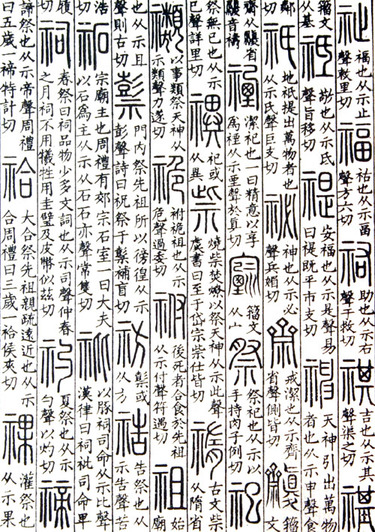 祉福也从示止聲敕里切福祐也从示畐聲方六切祐助也从示右聲于救切祺吉也从示其聲渠之切禥
籀文从基祗敬也从示氐聲旨移切禔安福也从示是聲易曰禔既平市支切神天神引出萬物者也从示申聲
鄰切祇地祇提出萬物者也从示氏聲巨支切祕神也从示必聲兵媚切齋戒潔也从示齊省聲側皆切𪗓籀文
齋从𩰫省𩰫音禱禋潔祀也一曰精意以享為禋从示垔聲於真切𡪀籀文从宀祭祭祀也从示以手持肉子例切祀
祭無已也从示巳聲詳里切禩祀或从異祡燒祡焚燎以祭天神从示此聲虞書曰至于岱宗祡仕皆切𥚪古文祡从隋省
禷以事類祭天神从示類聲力遂切祪祔祪祖也从示危聲過委切祔後死者合食於先祖从示付聲符遇切祖始廟
也从示且聲則古切𥛱門內祭先祖所以徬徨从示彭聲詩曰祝祭于𥛱補盲切祊𥛱或从方祰告祭也从示告聲苦
浩切祏宗廟主也周禮有郊宗石室一曰大夫以石為主从示从石石亦聲常隻切𥘔以豚祠司命从示比聲漢律曰祠𥘔司命卑
履切祠春祭曰祠品物少多文詞也从示司聲仲春之月祠不用犧牲用圭璧及皮幣似茲切礿夏祭也从示勺聲以灼切禘
諦祭也从示帝聲周禮曰五歲一禘特計切祫大合祭先祖親疏遠近也从示合周禮曰三歲一祫侯夾切祼灌祭也从示果